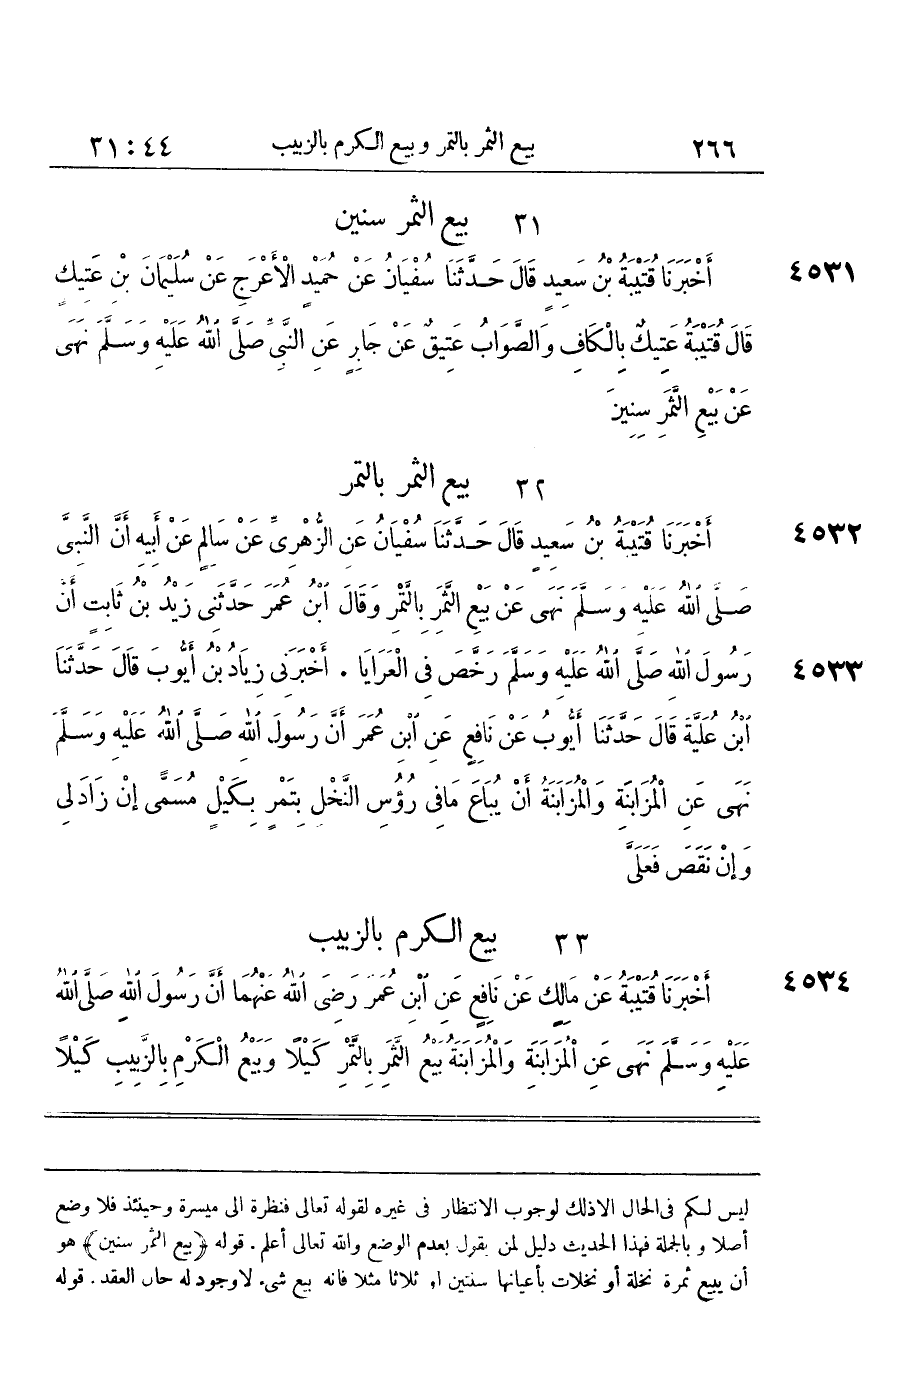 ٢٦٦ بيع الثمر بالتمر وبيع الكرم بالزبيب ٤٤ : ٣١
٣١ بيع الثمر سنين
٤٥٣١ أَخْبَرَنَا قُتَيْبَةُ بْنُ سَعِيدٍ قَالَ حَدَّثَنَا سُفْيَانُ عَنْ حُمَيْدٍ الْأَعْرَجِ عَنْ سُلَيْمَانَ بْنِ عَتِيكٍ
قَالَ قُتَيْبَةُ عَتِيكٌ بِالْكَافِ وَالصَّوَابُ عَتِيقٌ عَنْ جَابِرٍ عَنِ النَّبِىِّ صَلَّى اللهُ عَلَيْهِ وَسَلَّمَ نَهَى
عَنْ بَيْعِ الثَّمَرِ سِنِينَ
٣٢ بيع الثمر بالتمر
٤٥٣٢ أَخْبَرَنَا قُتَيْبَةُ بْنُ سَعِيدٍ قَالَ حَدَّثَنَا سُفْيَانُ عَنِ الزُّهْرِىِّ عَنْ سَالِمٍ عَنْ أَبِيهِ أَنَّ النَّبِىَّ
صَلَّى اللهُ عَلَيْهِ وَسَلَّمَ نَهَى عَنْ بَيْعِ الثَّمَرِ بِالتَّمْرِ وَقَالَ ابْنُ عُمَرَ حَدَّثَنِى زَيْدُ بْنُ ثَابِتٍ أَنَّ
رَسُولَ اللهِ صَلَّى اللهُ عَلَيْهِ وَسَلَّمَ رَخَّصَ فِى الْعَرَايَا . أَخْبَرَنِى زِيَادُ بْنُ أَيُّوبَ قَالَ حَدَّثَنَا ٤٥٣٣
ابْنُ عُلَيَّةَ قَالَ حَدَّثَنَا أَيُّوبُ عَنْ نَافِعٍ عَنِ ابْنِ عُمَرَ أَنَّ رَسُولَ اللهِ صَلَّى اللهُ عَلَيْهِ وَسَلَّمَ
نَهَى عَنِ الْمُزَابَنَةِ وَالْمُزَابَنَةُ أَنْ يُبَاعَ مَافِى رُؤُسِ النَّخْلِ بِتَمْرٍ بِكَيْلٍ مُسَمًّى إِنْ زَادَ لِى
وَإِنْ نَقَصَ فَعَلَىَّ
٣٣ بيع الكرم بالزبيب
٤٥٣٤ أَخْبَرَنَا قُتَيْبَةُ عَنْ مَالِكٍ عَنْ نَافِعٍ عَنِ ابْنِ عُمَرَ رَضِىَ اللهُ عَنْهُمَا أَنَّ رَسُولَ اللهِ صَلَّى اللهُ
عَلَيْهِ وَسَلَّمَ نَهَى عَنِ الْمُزَابَنَةِ وَالْمُزَابَنَةُ بَيْعُ الثَّمَرِ بِالتَّمْرِ كَيْلًا وَبَيْعُ الْكَرْمِ بِالزَّبِيبِ كَيْلًا
ليس لكم فى الحال الاذلك لوجوب الانتظار فى غيره لقوله تعالى فنظرة الى ميسرة وحينئذ فلا وضع
أصلا وبالجملة فهذا الحديث دليل لمن يقول بعدم الوضع والله تعالى أعلم. قوله ﴿بيع الثمر سنين﴾ هو
أن يبيع ثمرة نخلة أو نخلات بأعيانها سنتين او ثلاثا مثلا فانه بيع شىء لاوجود له حال العقد. قوله